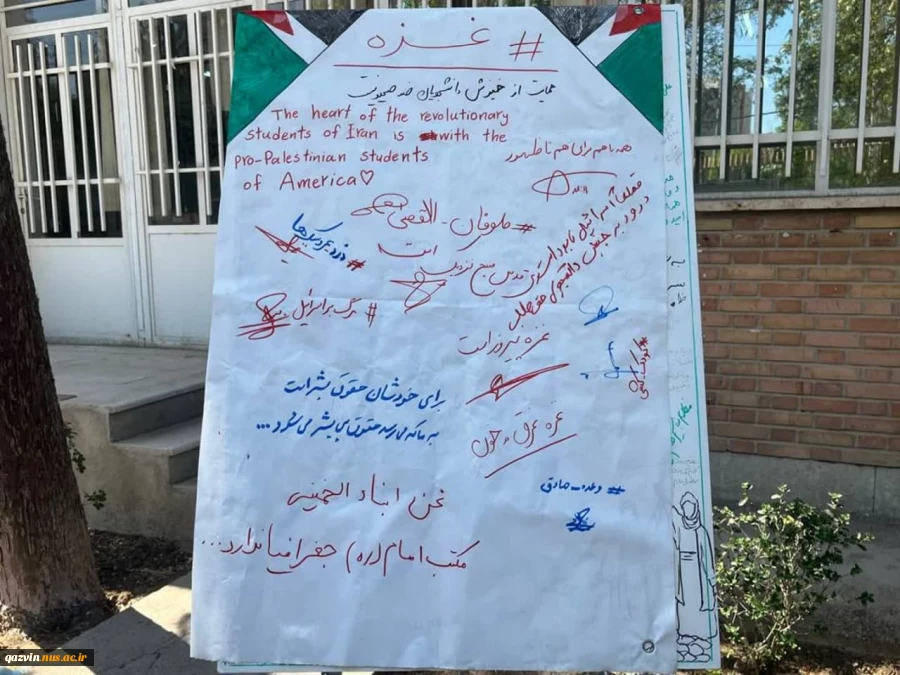 # غزه
حمایت از خیزش دانشجویان ضد صهیونیست
The heart of the revolutionary
students of Iran is with the
pro-Palestinian students
of America♡
همه با هم برای هم تا ظهور
#طوفان_الاقصی
است
قطعا اسرائیل نابود
درود به جنبش
#مرگ بر اسرائیل
غزه پیروز است
برای خودشان حقوق بشر است
به ما که می رسد حقوق بی بشر می شود...
غزه غرق در خون
#وعده_صادق
نحن ابناء الخمینی
مکتب امام (ره) جغرافیا ندارد...
qazvin.nus.ac.ir